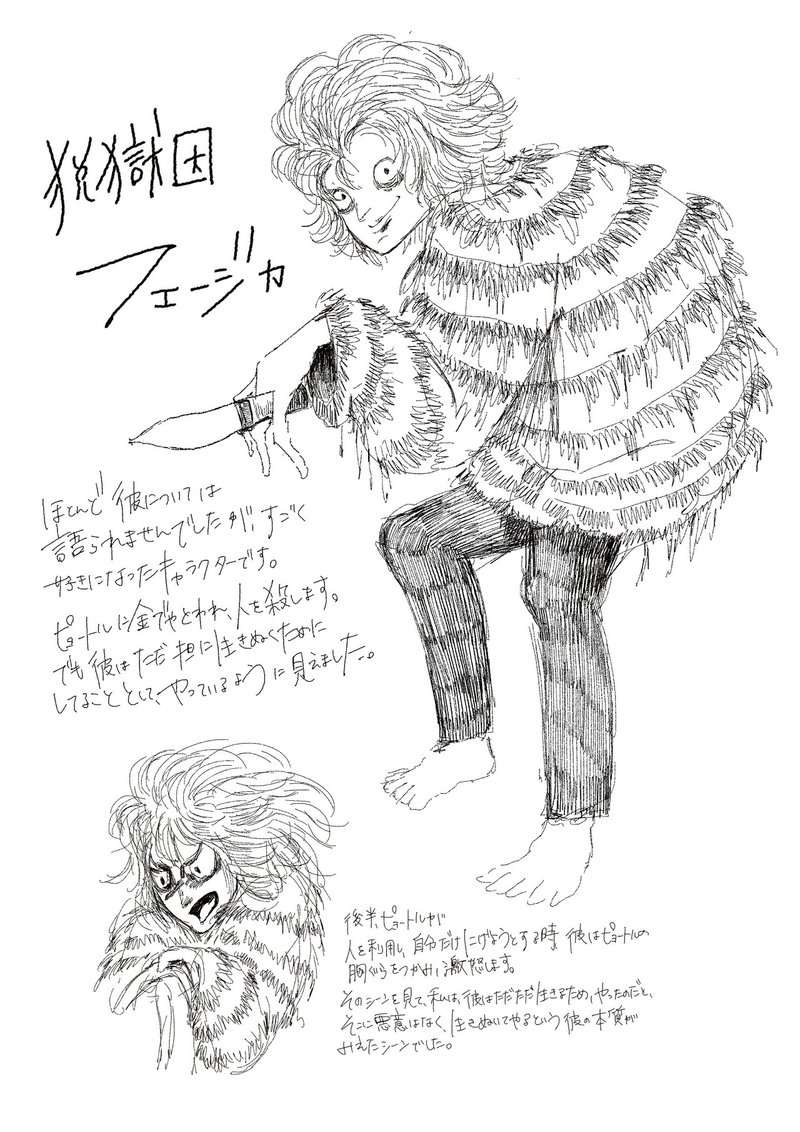 脱獄囚
フェージカ
ほとんど彼については
語られませんでしたが、すごく
好きになったキャラクターです。
ピョートルに金でやとわれ、人を殺します。
でも彼はただ担に生きぬくために
してることとして、やっているように見えました。
後半、ピョートルが
人を利用し、自分だけにげようとする時、彼はピョートルの
胸ぐらをつかみ、激怒します。
そのシーンを見て、私は、彼はただただ生きるため、やったのだと、
そこに悪意はなく、生きぬいてやるという彼の本質が
みえたシーンでした。